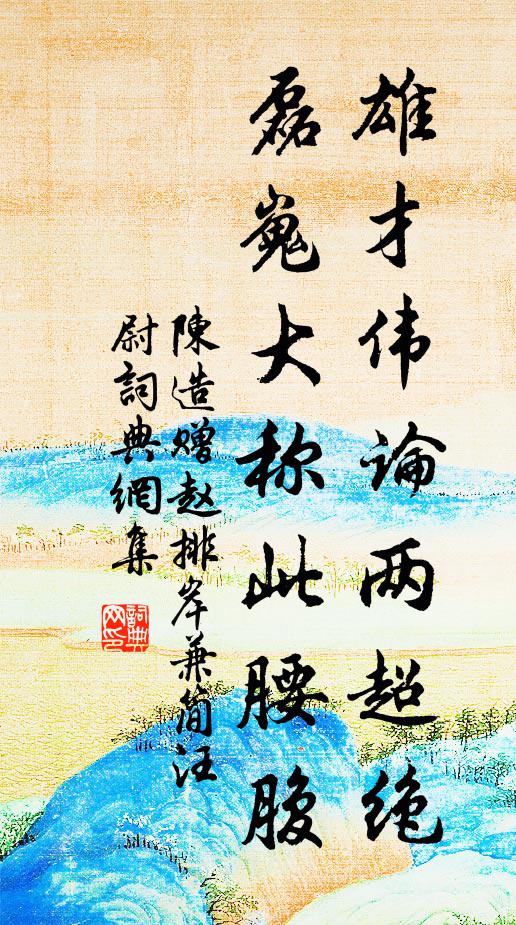 雄才伟論两超绝
磊嵬大称此腰腹
陳造赠赵排岸兼简汪
尉詞典網集
詞典
网印